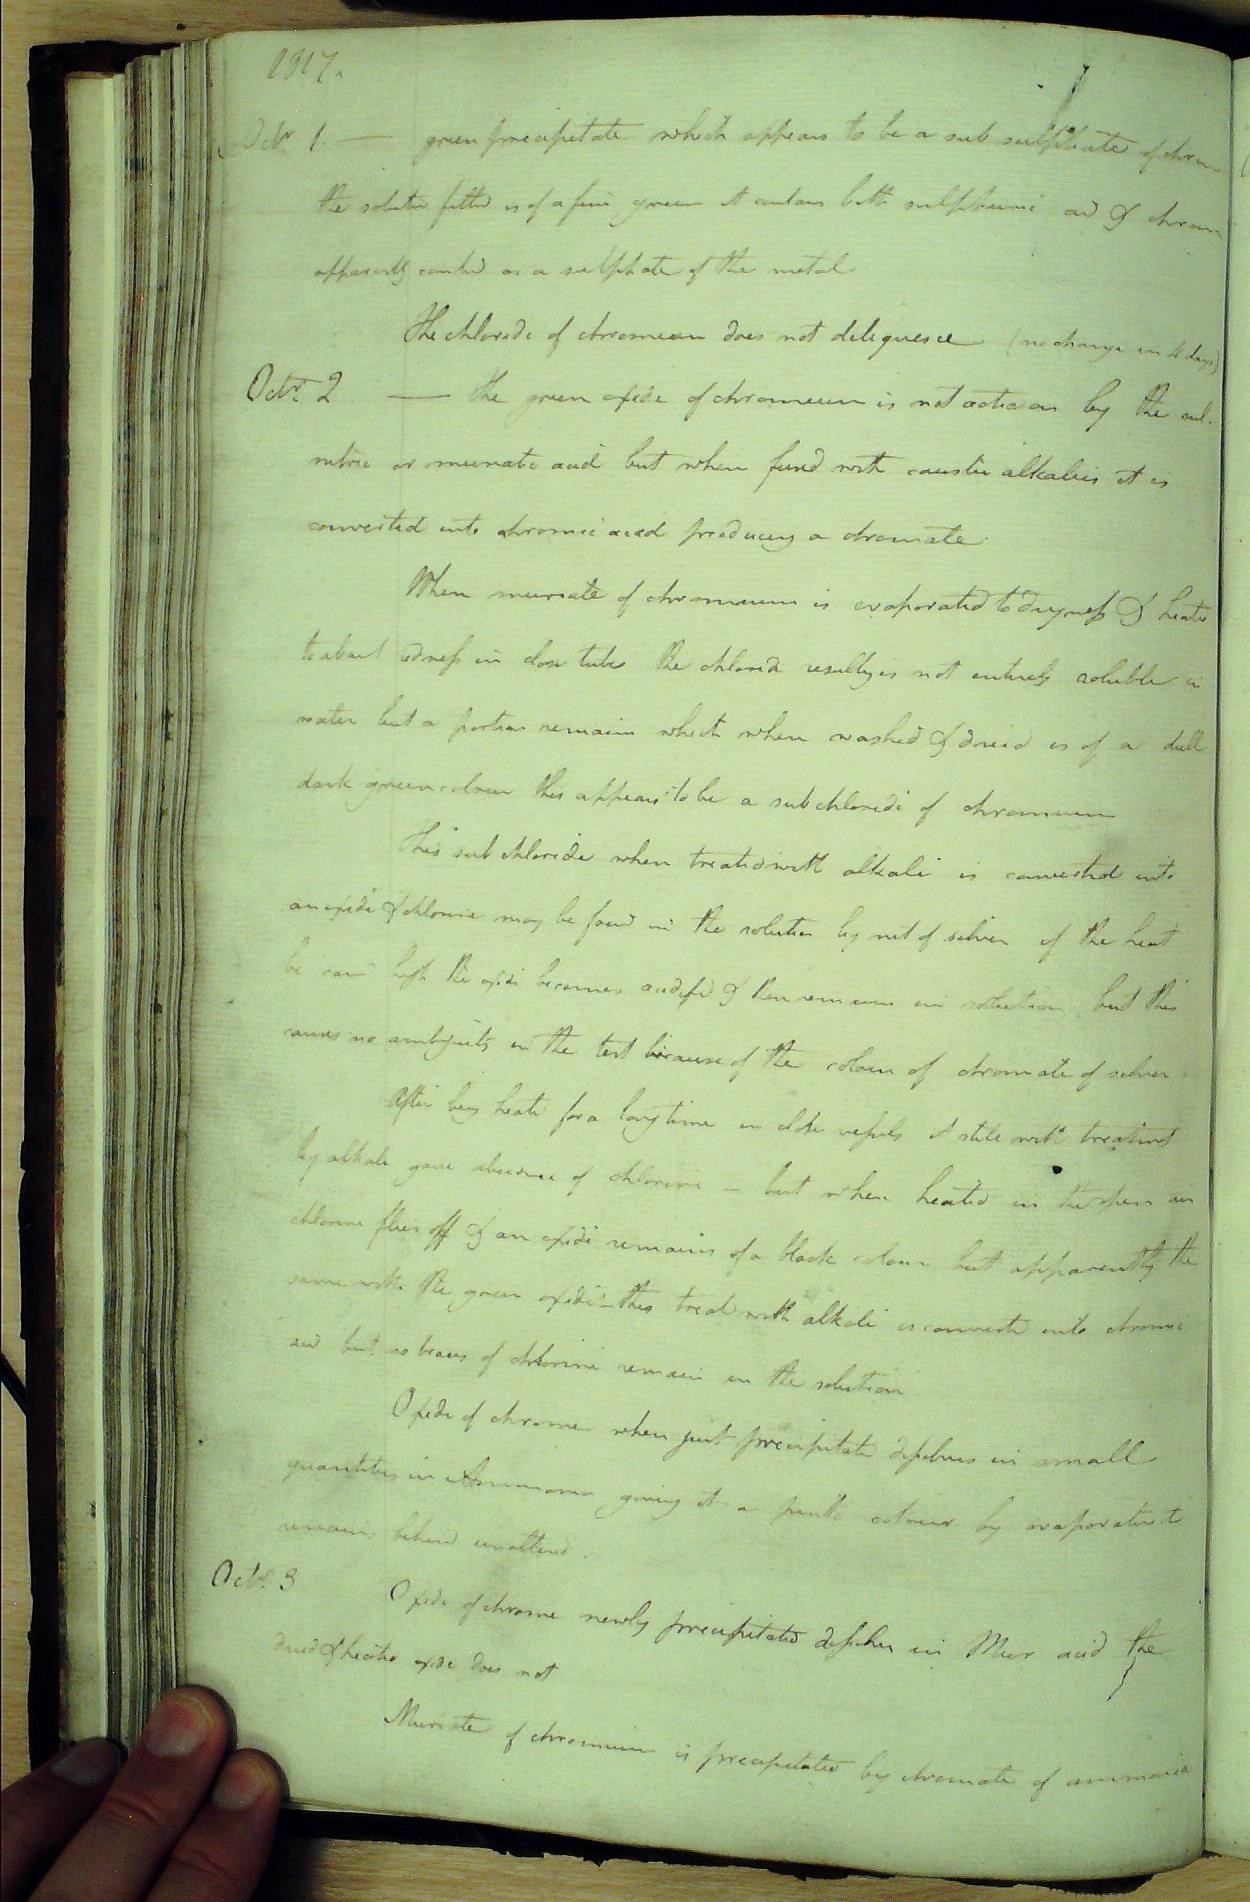 1817.
Octr 1. — green precipitate which appears to be a sub sulphate of chrom
the solution filtd is of a fine green it contains both sulphuric acid & chrom
apparently combd as a sulphate of the metal
The chloride of chromeum does not deliquesce (no change in 4 days)
Octr. 2 — the green oxide of chromeum is not acted on by the sul.
nitric or muriatic acid but when fused with caustic alkalies it is
converted into chromic acid producing a chromate.
When muriate of chromeum is evaporated to dryness & heated
to about redness in close tubes the chloride resulting is not entirely soluble in
water but a portion remains which when washed & dried is of a dull
dark green colour this appears to be a subchloride of chromeum
This sub chloride when treated with alkali is converted into
an oxide & chlorine may be found in the solution by nit of silver if the heat
be high the oxide becomes acidifd & then remains in solution but this
causes no ambiguity in the test because of the colour of chromate of silver
After being heated for a long time in close vessels it still with treatmt
by alkali gave evidence of chlorine – but when heated in the open air
chlorine flies off & an oxide remains of a black colour but apparently the
same with the green oxide – this treatd with alkali is converted into chromic
acid but no traces of chlorine remain in the solution
Oxide of chrome when just precipitated dissolves in small
quantities in Ammonia giving it a pink colour by evaporation it
remains behind unaltered.
Octr. 3 Oxide of chrome newly precipitated dissolves in Mur acid the
dried & heated oxide does not
Muriate of chromium is precipitated by chromate of ammonia